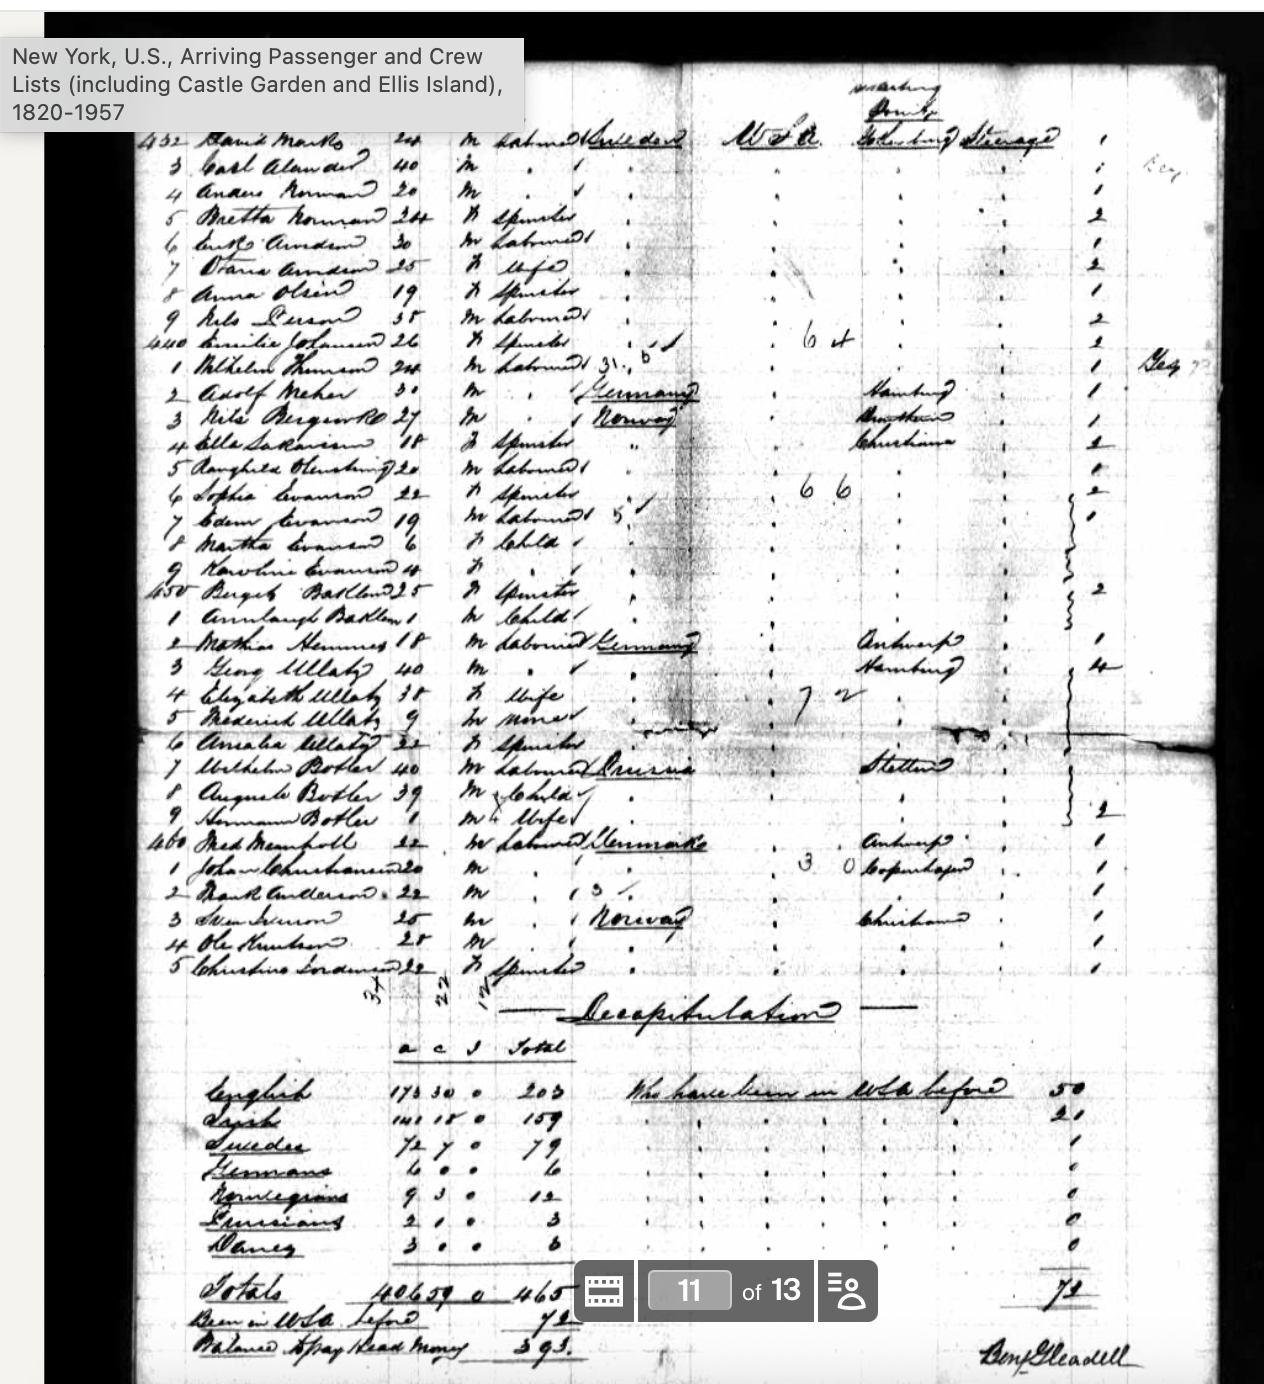 New York, U.S., Arriving Passenger and Crew
Lists (including Castle Garden and Ellis Island),
1820-1957
432 David Marks 24 m Labourer Sweden U S A. Steerage 1
3 Carl Alander 40 m 1
4 Anders Norman 20 m 1
5 Bretta Norman 24 f Spinster 2
6 Erik Arvidson 30 m Labourer 1
7 Arvidson 25 f Wife 2
8 Anna Olsen 19 f Spinster 1
9 Nils Person 38 m Labourer 2
440 Emilie Johanson 26 f Spinster 6 4 2
1 Wilhelm Thomson 24 m Labourer 31. 6 1
2 Adolf Meher 30 m Germany Hamburg 1
3 Nils 27 m Norway 1
4 Ella 18 f Spinster Christiana 2
5 20 m Labourer 1
6 Sophia Evanson 22 f Spinster 6 6 2
7 Edem Evanson 19 m Labourer 5 1
8 Martha Evanson 6 f Child
9 Karoline Evanson 4 f
450 25 f Spinster 2
1 1 m Child
2 Mathias Hemmes 18 m Labourer Germany Antwerp 1
3 Georg Ullatz 40 m Hamburg 4
4 Elizabeth Ullatz 38 f Wife 7 2
5 Frederick Ullatz 9 m
6 Amalia Ullatz 22 f Spinster
7 Wilhelm Botler 40 m Labourer Prussia Stettin
8 Auguste Botler 39 m Child
9 Hermann Botler 1 m Wife 2
460 Fred 22 m Labourer Denmark Antwerp 1
1 Johan Christiansen 20 m 3 0 Copenhagen 1
2 Frank Anderson 22 m 3 1
3 Sven Iverson 25 m Norway Christiana 1
4 Ole Knutson 28 m 1
5 Christine 22 f Spinster 1
34 22 12
Recapitulation
a c I Total
English 173 30 0 203 Who have been in USA before 50
Irish 141 18 0 159 21
Swedes 72 7 0 79 1
Germans 6 0 0 6 0
Norwegians 9 3 0 12 0
Prussians 2 1 0 3 0
Danes 3 0 0 3 0
Totals 406 59 0 465 72
Been in USA before 72
Balance to pay Head Money 393.
Benj Gleadell
11 of 13